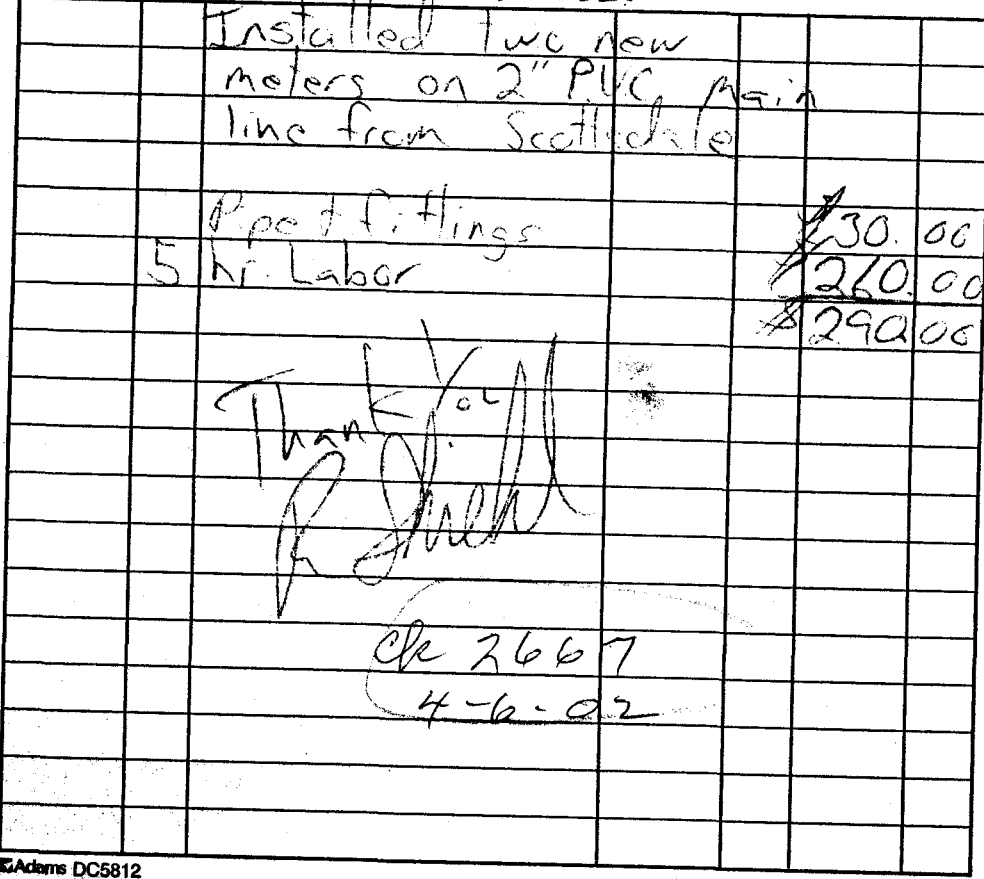 Installed Two new
meters on 2" PVC main
line from Scottsdale
Pipe & fittings $30.00
5 hr. Labor $260.00
$290.00
Thank You
R
ck 2667
4-6-02
Adams DC5812